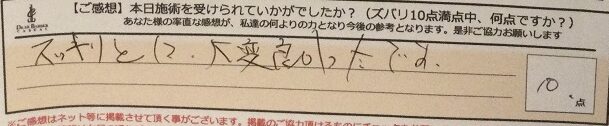 【ご感想】本日施術を受けられていかがでしたか？（ズバリ10点満点中、何点ですか？）
あなた様の率直な感想が、私達の何よりの力となり今後の参考となります。是非ご協力お願いします
スッキリとして、大変良かったです。
10点
※ご感想はネット等に掲載させて頂く事がございます。